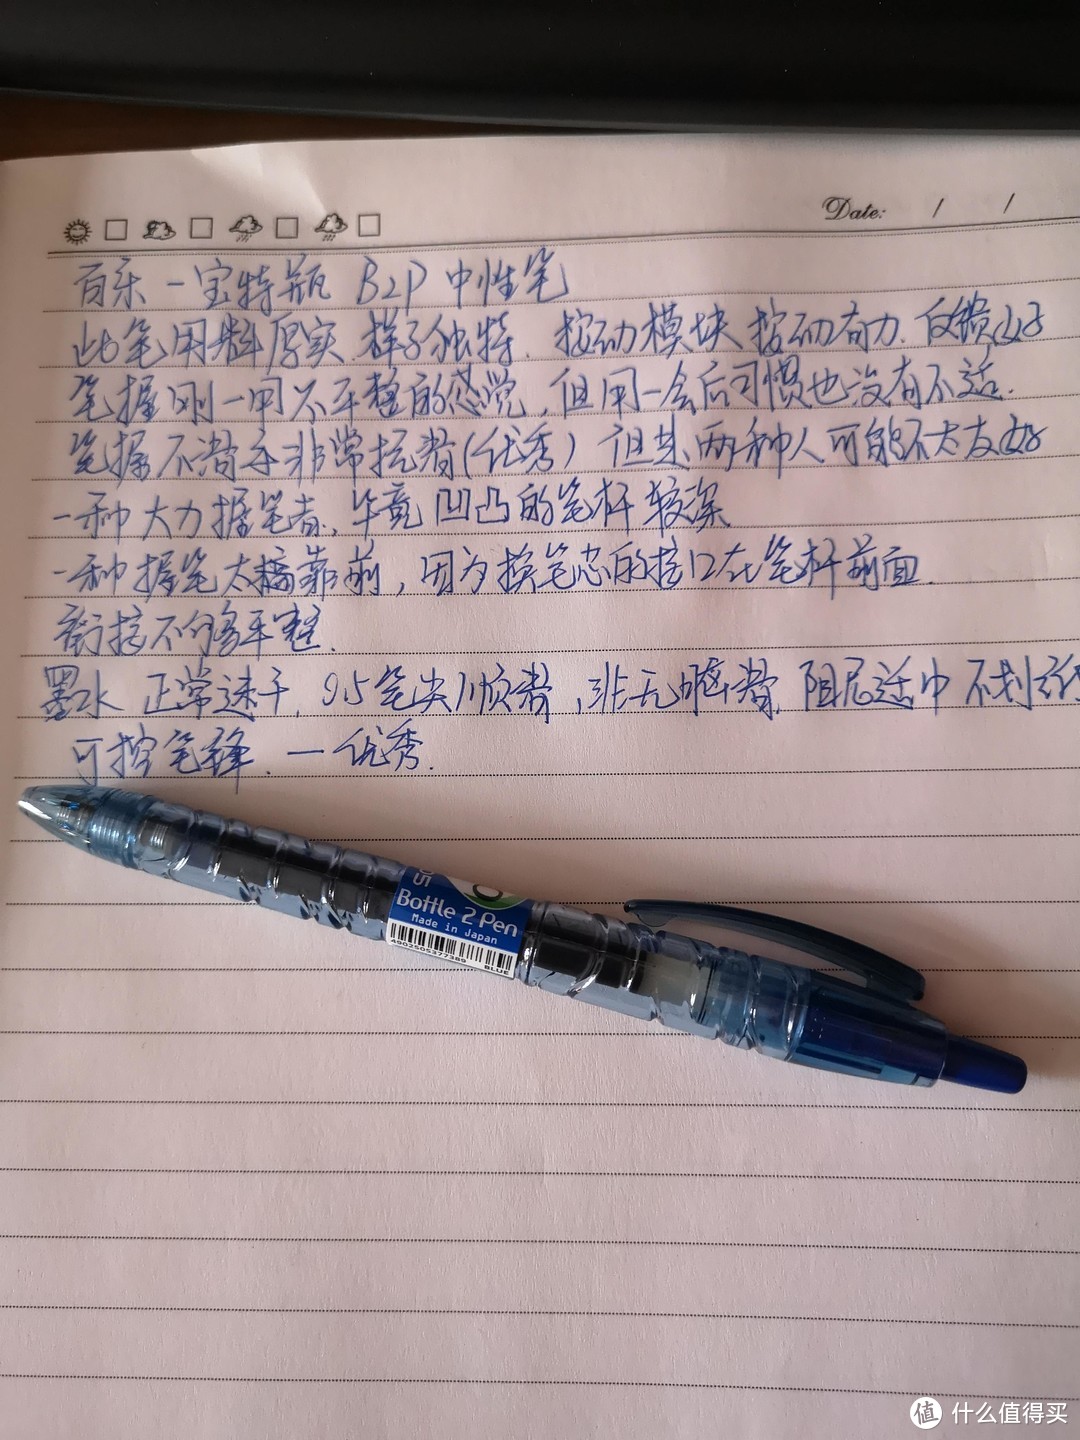 Date: / /
百乐一宝特瓶 B2P 中性笔
此笔用料厚实.样子独特.按动模块按动有力.反馈好
笔握刚一用不平整的感觉,但用一会后习惯也没有不适.
笔握不滑手非常抓着(优秀)但其两种人可能不太友好
一种大力握笔者.毕竟凹凸的笔杆较深
一种握笔太靠前,因为换笔芯的接口在笔杆前面.
衔接不够平整.
墨水 正常速干.05笔尖顺滑,非无脑滑.阻尼适中 不划纸
可控笔锋.一优秀.
05
Bottle 2 Pen
Made in Japan
4902505377389 BLUE
值 什么值得买